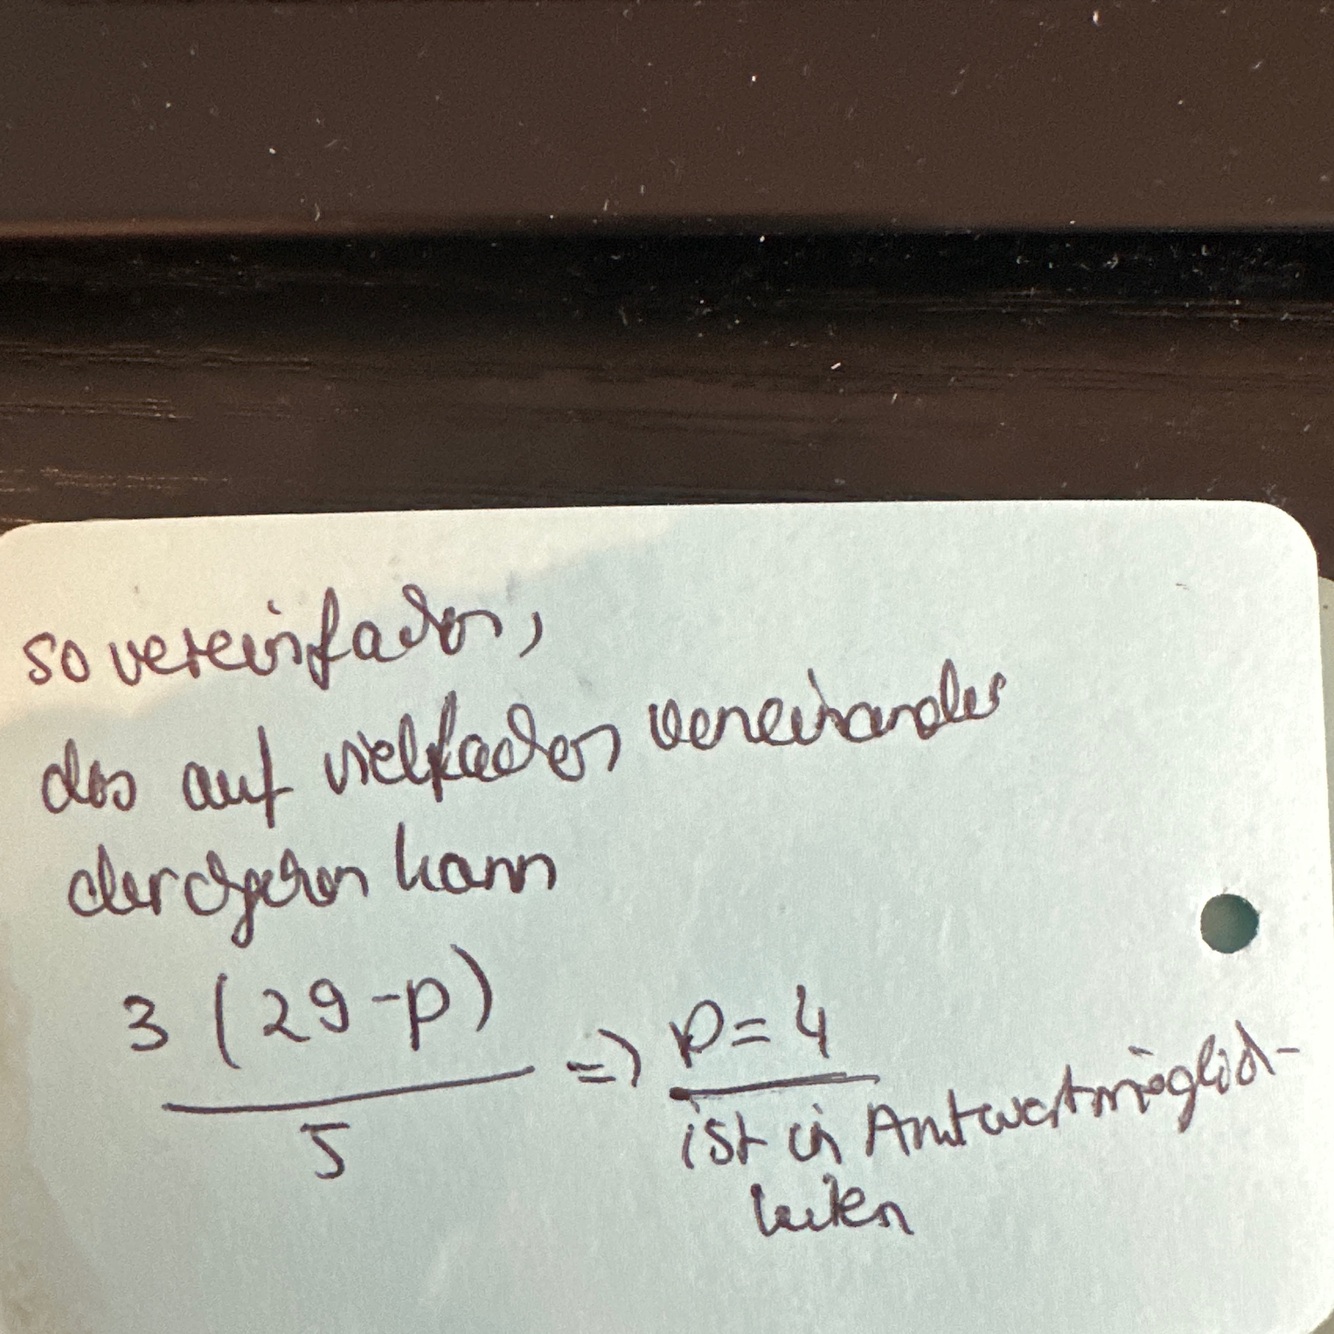 so vereinfachen,
das auf vielfachen voneinander
durchgehen kann
3 (29-p)
5
=> p = 4
ist in Antwortmöglich-
keiten